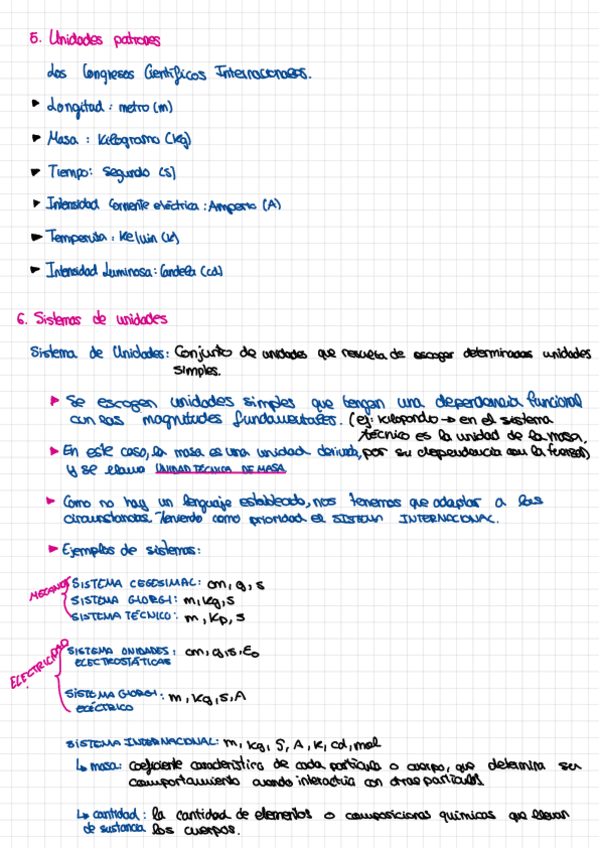 5. Unidades patrones
Los Congresos Científicos Internacionales.
► Longitud: metro (m)
► Masa: Kilogramo (kg)
► Tiempo: Segundo (s)
► Intensidad Corriente eléctrica: Amperio (A)
► Temperatura: Kelvin (K)
► Intensidad Luminosa: Candela (cd)
6. Sistemas de unidades
Sistema de Unidades: Conjunto de unidades que resulta de escoger determinadas unidades
simples.
► Se escogen unidades simples que tengan una dependencia funcional
con las magnitudes fundamentales. (ej: kilopondio → en el sistema
técnico es la unidad de la masa.
► En este caso, la masa es una unidad derivada, por su dependencia con la fuerza)
y se llama UNIDAD TÉCNICA DE MASA
► Como no hay un lenguaje establecido, nos tenemos que adaptar a las
circunstancias. Teniendo como prioridad el SISTEMA INTERNACIONAL.
► Ejemplos de sistemas:
MECÁNICA
SISTEMA CEGESIMAL: cm, g, s
SISTEMA GIORGI: m, kg, s
SISTEMA TÉCNICO: m, kp, s
ELECTRICIDAD
SISTEMA UNIDADES: cm, g, s, E₀
ELECTROSTÁTICAS
SISTEMA GIORGI: m, kg, s, A
ELÉCTRICO
SISTEMA INTERNACIONAL: m, kg, s, A, K, cd, mol
↳ masa: coeficiente característico de cada partícula o cuerpo, que determina su
comportamiento cuando interactúa con otras partículas.
↳ cantidad: la cantidad de elementos o composiciones químicas que llevan
de sustancia los cuerpos.